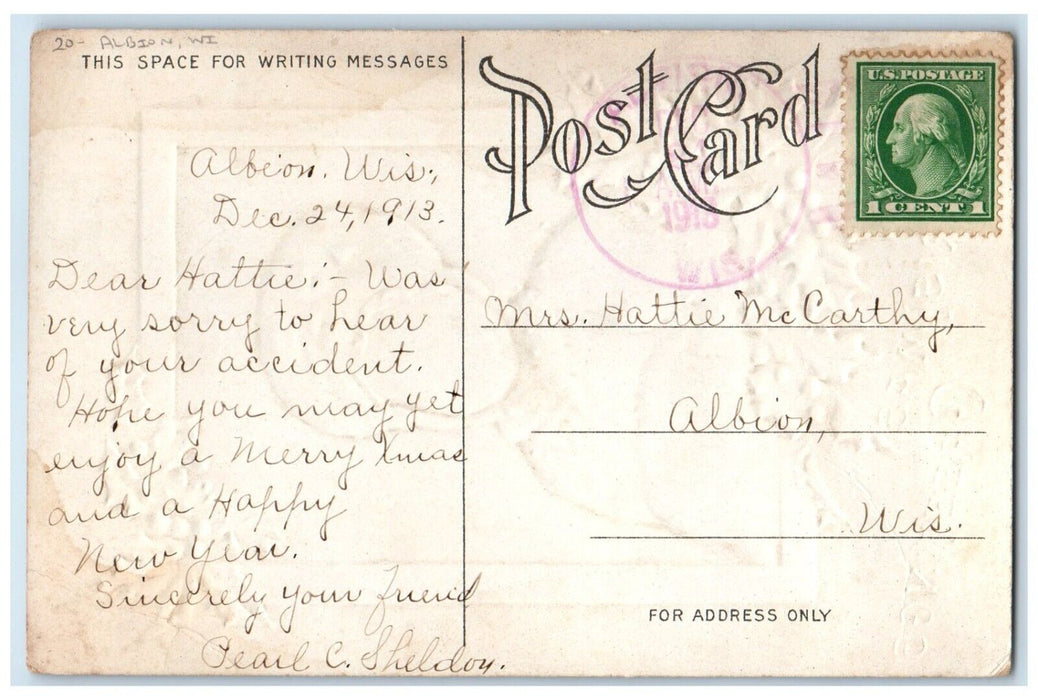 20- ALBION, WI
THIS SPACE FOR WRITING MESSAGES
Post Card
U.S. POSTAGE
1 CENT 1
1913
WIS.
Albion. Wis.,
Dec. 24, 1913.
Dear Hattie:- Was
very sorry to hear
of your accident.
Hope you may yet
enjoy a Merry Xmas
and a Happy
New Year.
Sincerely your friend
Pearl C. Sheldon.
Mrs. Hattie McCarthy,
Albion,
Wis.
FOR ADDRESS ONLY